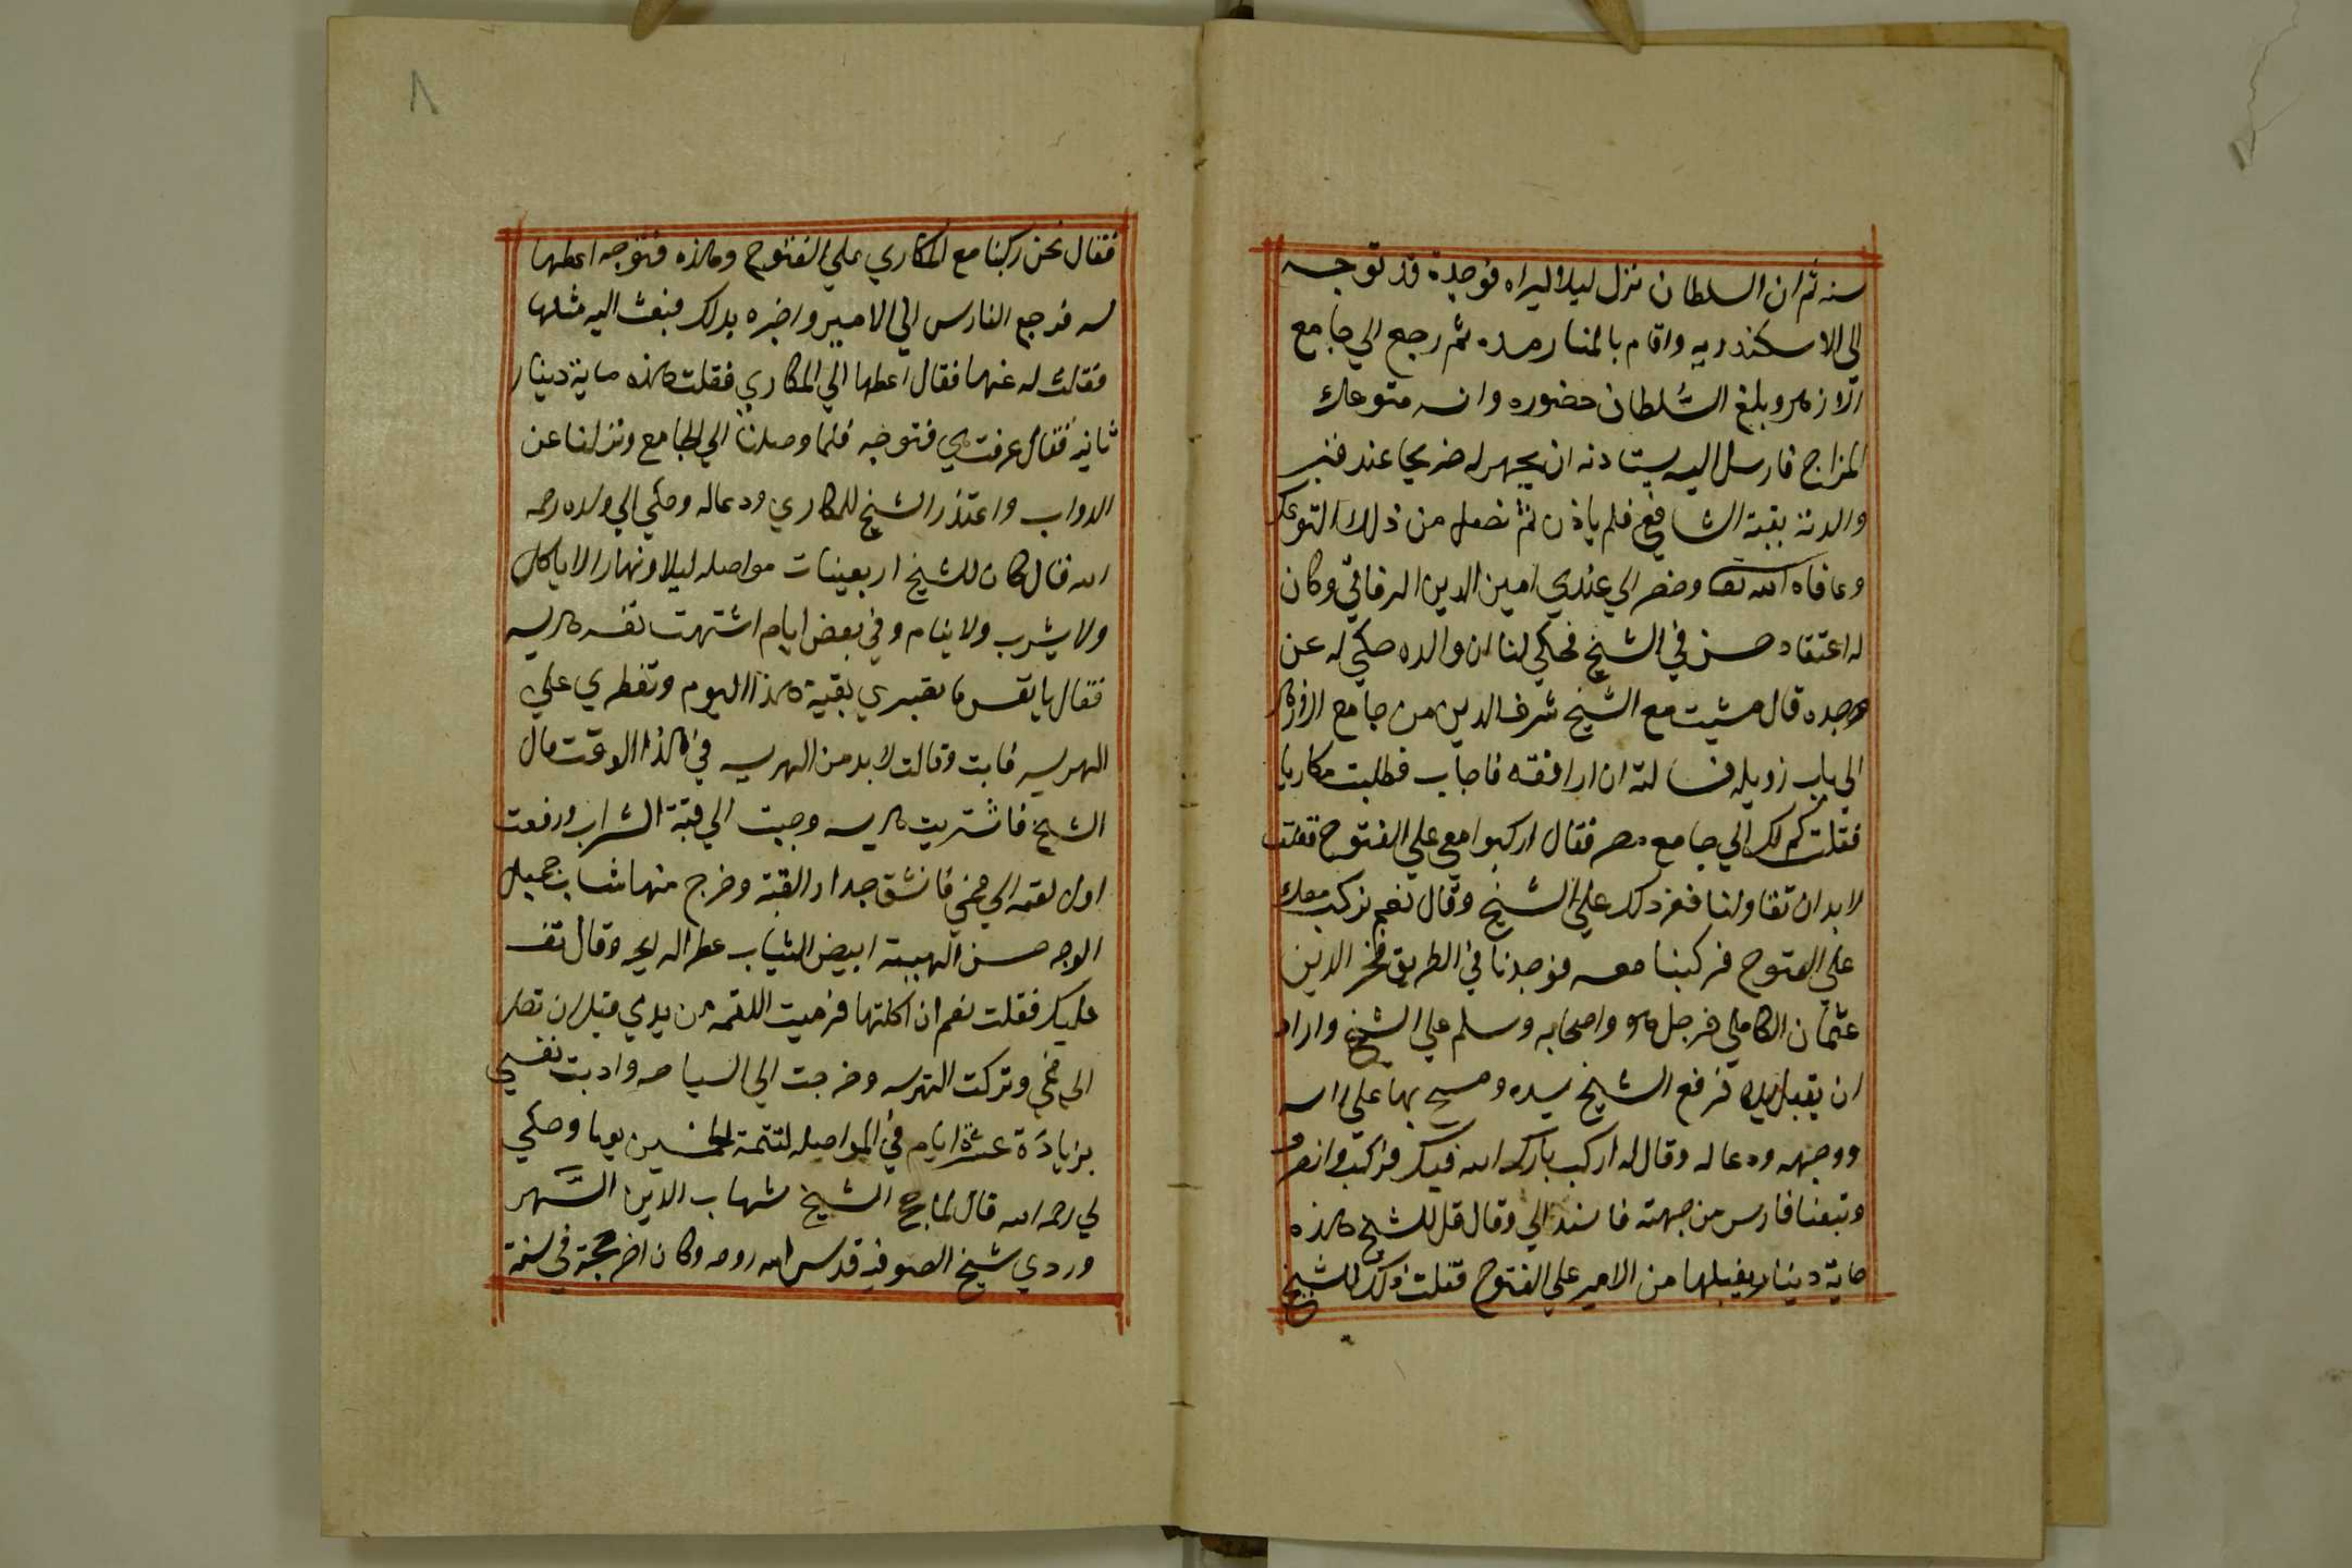 سنه ثم ان السلطان نزل ليلا ليراه فوجده قد توجه
الى الاسكندريه واقام بالمنار مده ثم رجع الي جامع
الازهر وبلغ السلطان حضوره وانه متوعك
المزاج فارسل اليه يستاذنه ان يجهر له ضريحا عند قبر
والدته بقبة الشافعي فلم ياذن ثم نصل من ذلك التوعك
وعافاه الله تعا وحضر الي عندي امين الدين الرقاقي وكان
له اعتقاد حسن في الشيخ فحكي لنا ان والده حكي له عن
جده قال مشيت مع الشيخ شرف الدين من جامع الازهر
الي باب زويله فسالته ان ارافقه فاجاب فطلبت مكاريا
فقلت كم لك الي جامع مصر فقال اركبوا معي علي الفتوح فقلت
لابد ان تقاولنا فعز ذلك علي الشيخ وقال نعم نركب معك
علي الفتوح فركبنا معه فوجدنا في الطريق فخر الدين
عثمان الكاملي فرجل هو واصحابه وسلم علي الشيخ واراد
ان يقبل يده فرفع الشيخ يده ومسح بها علي راسه
ووجهه ودعا له وقال له اركب بارك الله فيك فركب وانصرف
وتبعنا فارس من جهته فاسند الي وقال قل للشيخ هذه
ماية دينار يقبلها من الامير علي الفتوح فقلت ذلك للشيخ
٨
فقال نحن ركبنا مع المكاري علي الفتوح وهذه فتوحه اعطها
له فرجع الفارس الي الامير واخبره بذلك فبعث اليه مثلها
فقلت له عنها فقال اعطها الي المكاري فقلت هذه ماية دينار
ثانية فقال عرفت هي فتوحه فلما وصلنا الي الجامع ونزلنا عن
الدواب واعتذر الشيخ للمكاري ودعا له وحكي لي ولده رحمه
الله قال كان للشيخ اربعينات مواصله ليلا ونهارا لا ياكل
ولا يشرب ولا ينام وفي بعض ايام اشتهت نفسه هريسه
فقال يا نفس ما تصبري بقية هذا اليوم وتفطري علي
الهريسه فابت وقالت لابد من الهريسه في هذا الوقت قال
الشيخ فاشتريت هريسه وجيت الي قبة الشراب ورفعت
اول لقمه الي فمي فانشق جدار القبة وخرج منها شاب جميل
الوجه حسن الهيبة ابيض الثياب عطر الريحه وقال تف
عليك فقلت نعم ان اكلتها فرميت اللقمه من يدي قبل ان تصل
الي فمي وتركت الهريسه وخرجت الي السياحه وادبت نفسي
بزيادة عشرة ايام في المواصله لتتمة الخمسين يوما وحكي
لي رحمه الله قال لما حج الشيخ شهاب الدين السهر
وردي شيخ الصوفيه قدس الله روحه وكان اخر حجة في سنة